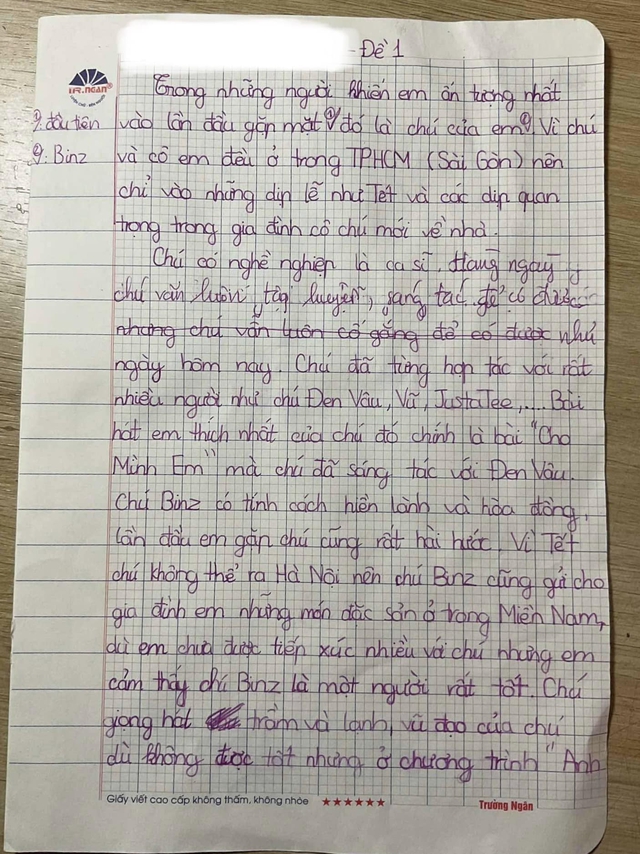 - Đề 1
VR.NGAN
Trong những người khiến em ấn tượng nhất
đầu tiên
vào lần đầu gặp mặt đó là chú của em. Vì chú
Binz
và cô em đều ở trong TPHCM (Sài Gòn) nên
chỉ vào những dịp lễ như Tết và các dịp quan
trọng trong gia đình cô chú mới về nhà.
Chú có nghề nghiệp là ca sĩ. Hàng ngày
chú vẫn luôn tập luyện, sáng tác để có được
nhưng chú vẫn luôn cố gắng để có được như
ngày hôm nay. Chú đã từng hợp tác với rất
nhiều người như chú Đen Vâu, Vũ, JustaTee,.... Bài
hát em thích nhất của chú đó chính là bài "Cho
Mình Em" mà chú đã sáng tác với Đen Vâu.
Chú Binz có tính cách hiền lành và hòa đồng,
lần đầu em gặp chú cũng rất hài hước. Vì Tết
chú không thể ra Hà Nội nên chú Binz cũng gửi cho
gia đình em những món đặc sản ở trong Miền Nam,
dù em chưa được tiếp xúc nhiều với chú nhưng em
cảm thấy chú Binz là một người rất tốt. Chú
giọng hát trầm và lạnh, vũ đạo của chú
dù không được tốt nhưng ở chương trình "Anh
Giấy viết cao cấp không thấm, không nhòe ★★★★★★ Trường Ngân